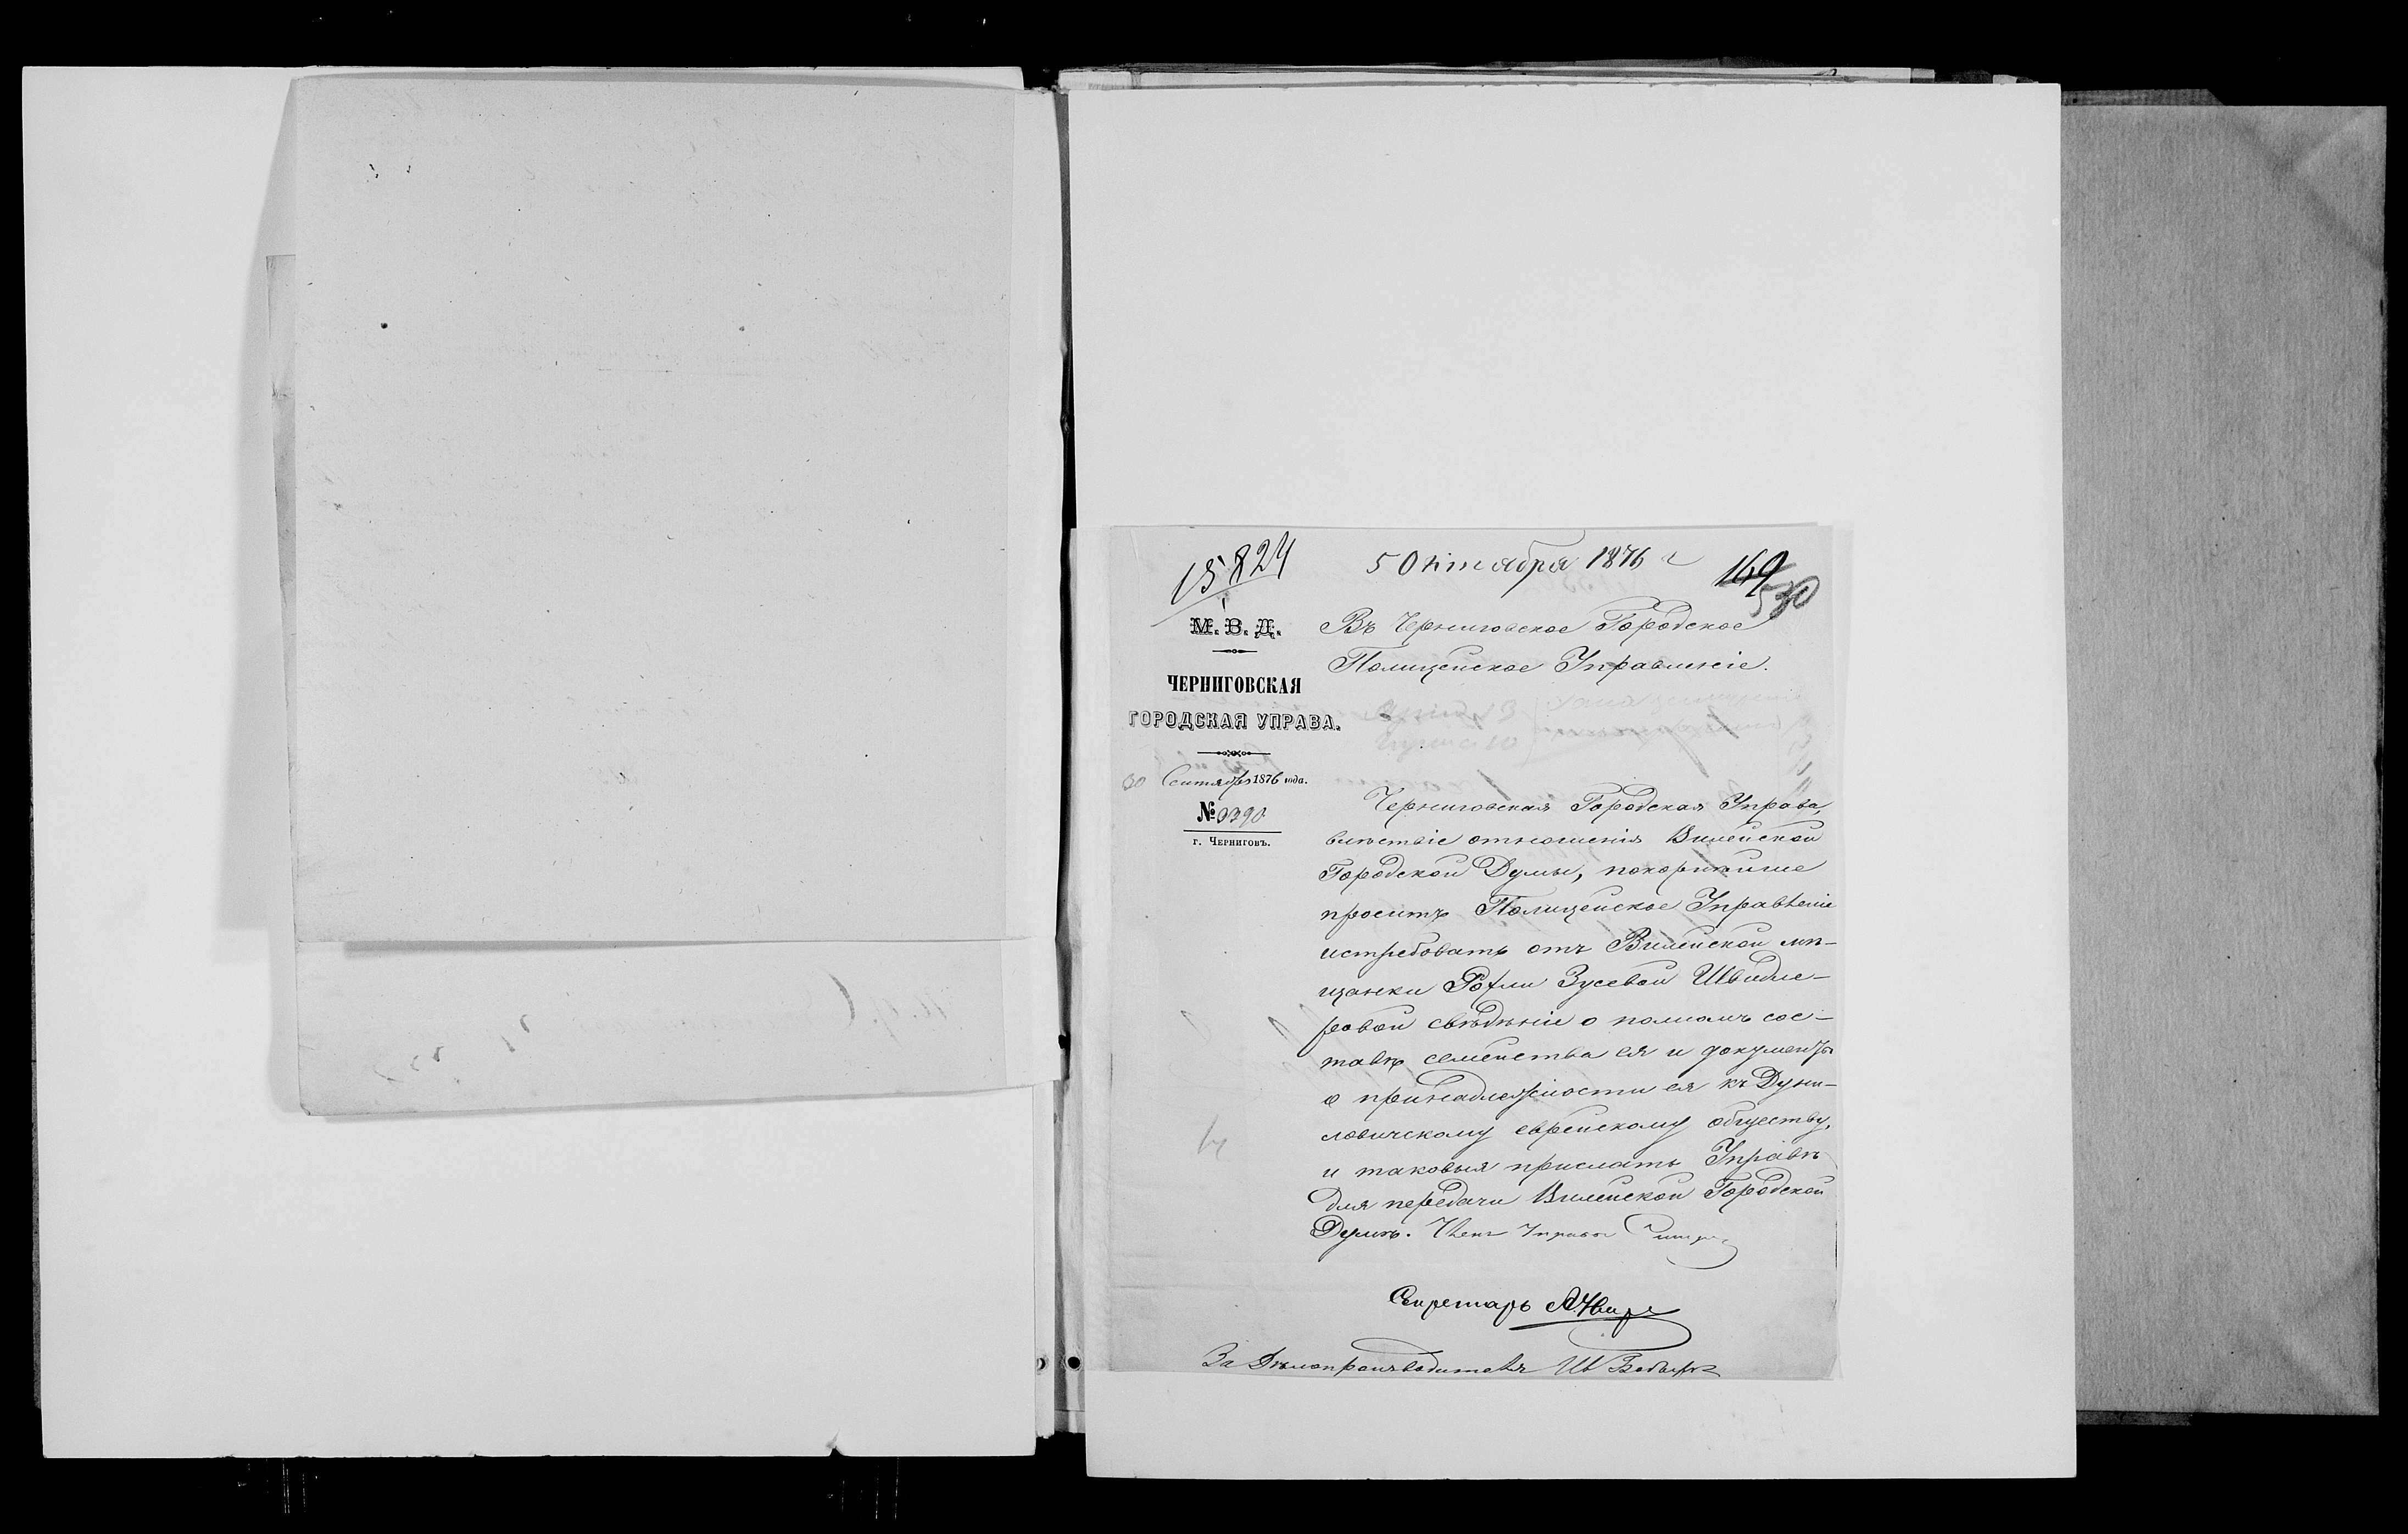 15824
5 Октября 1876 г
169
530
М. В. Д.
ЧЕРНИГОВСКАЯ
ГОРОДСКАЯ УПРАВА.
30 Сентября 1876 года.
№ 3390
г. Черниговъ.
Въ Черниговское Городское
Полицейское Управленіе.
Черниговская Городская Управа,
вслѣдствіе отношенія Вилейской
Городской Думы, покорнѣйше
проситъ Полицейское Управленіе
истребовать отъ Вилейской мѣ-
щанки Рохли Зусевой Швидле-
ровой свѣдѣніе о полномъ сос-
тавѣ семейства ея и документы
о принадлежности ея къ Дуни-
ловичскому еврейскому обществу,
и таковыя прислать Управѣ
для передачи Вилейской Городской
Думѣ. Членъ Управы
Секретарь
За Дѣлопроизводителя